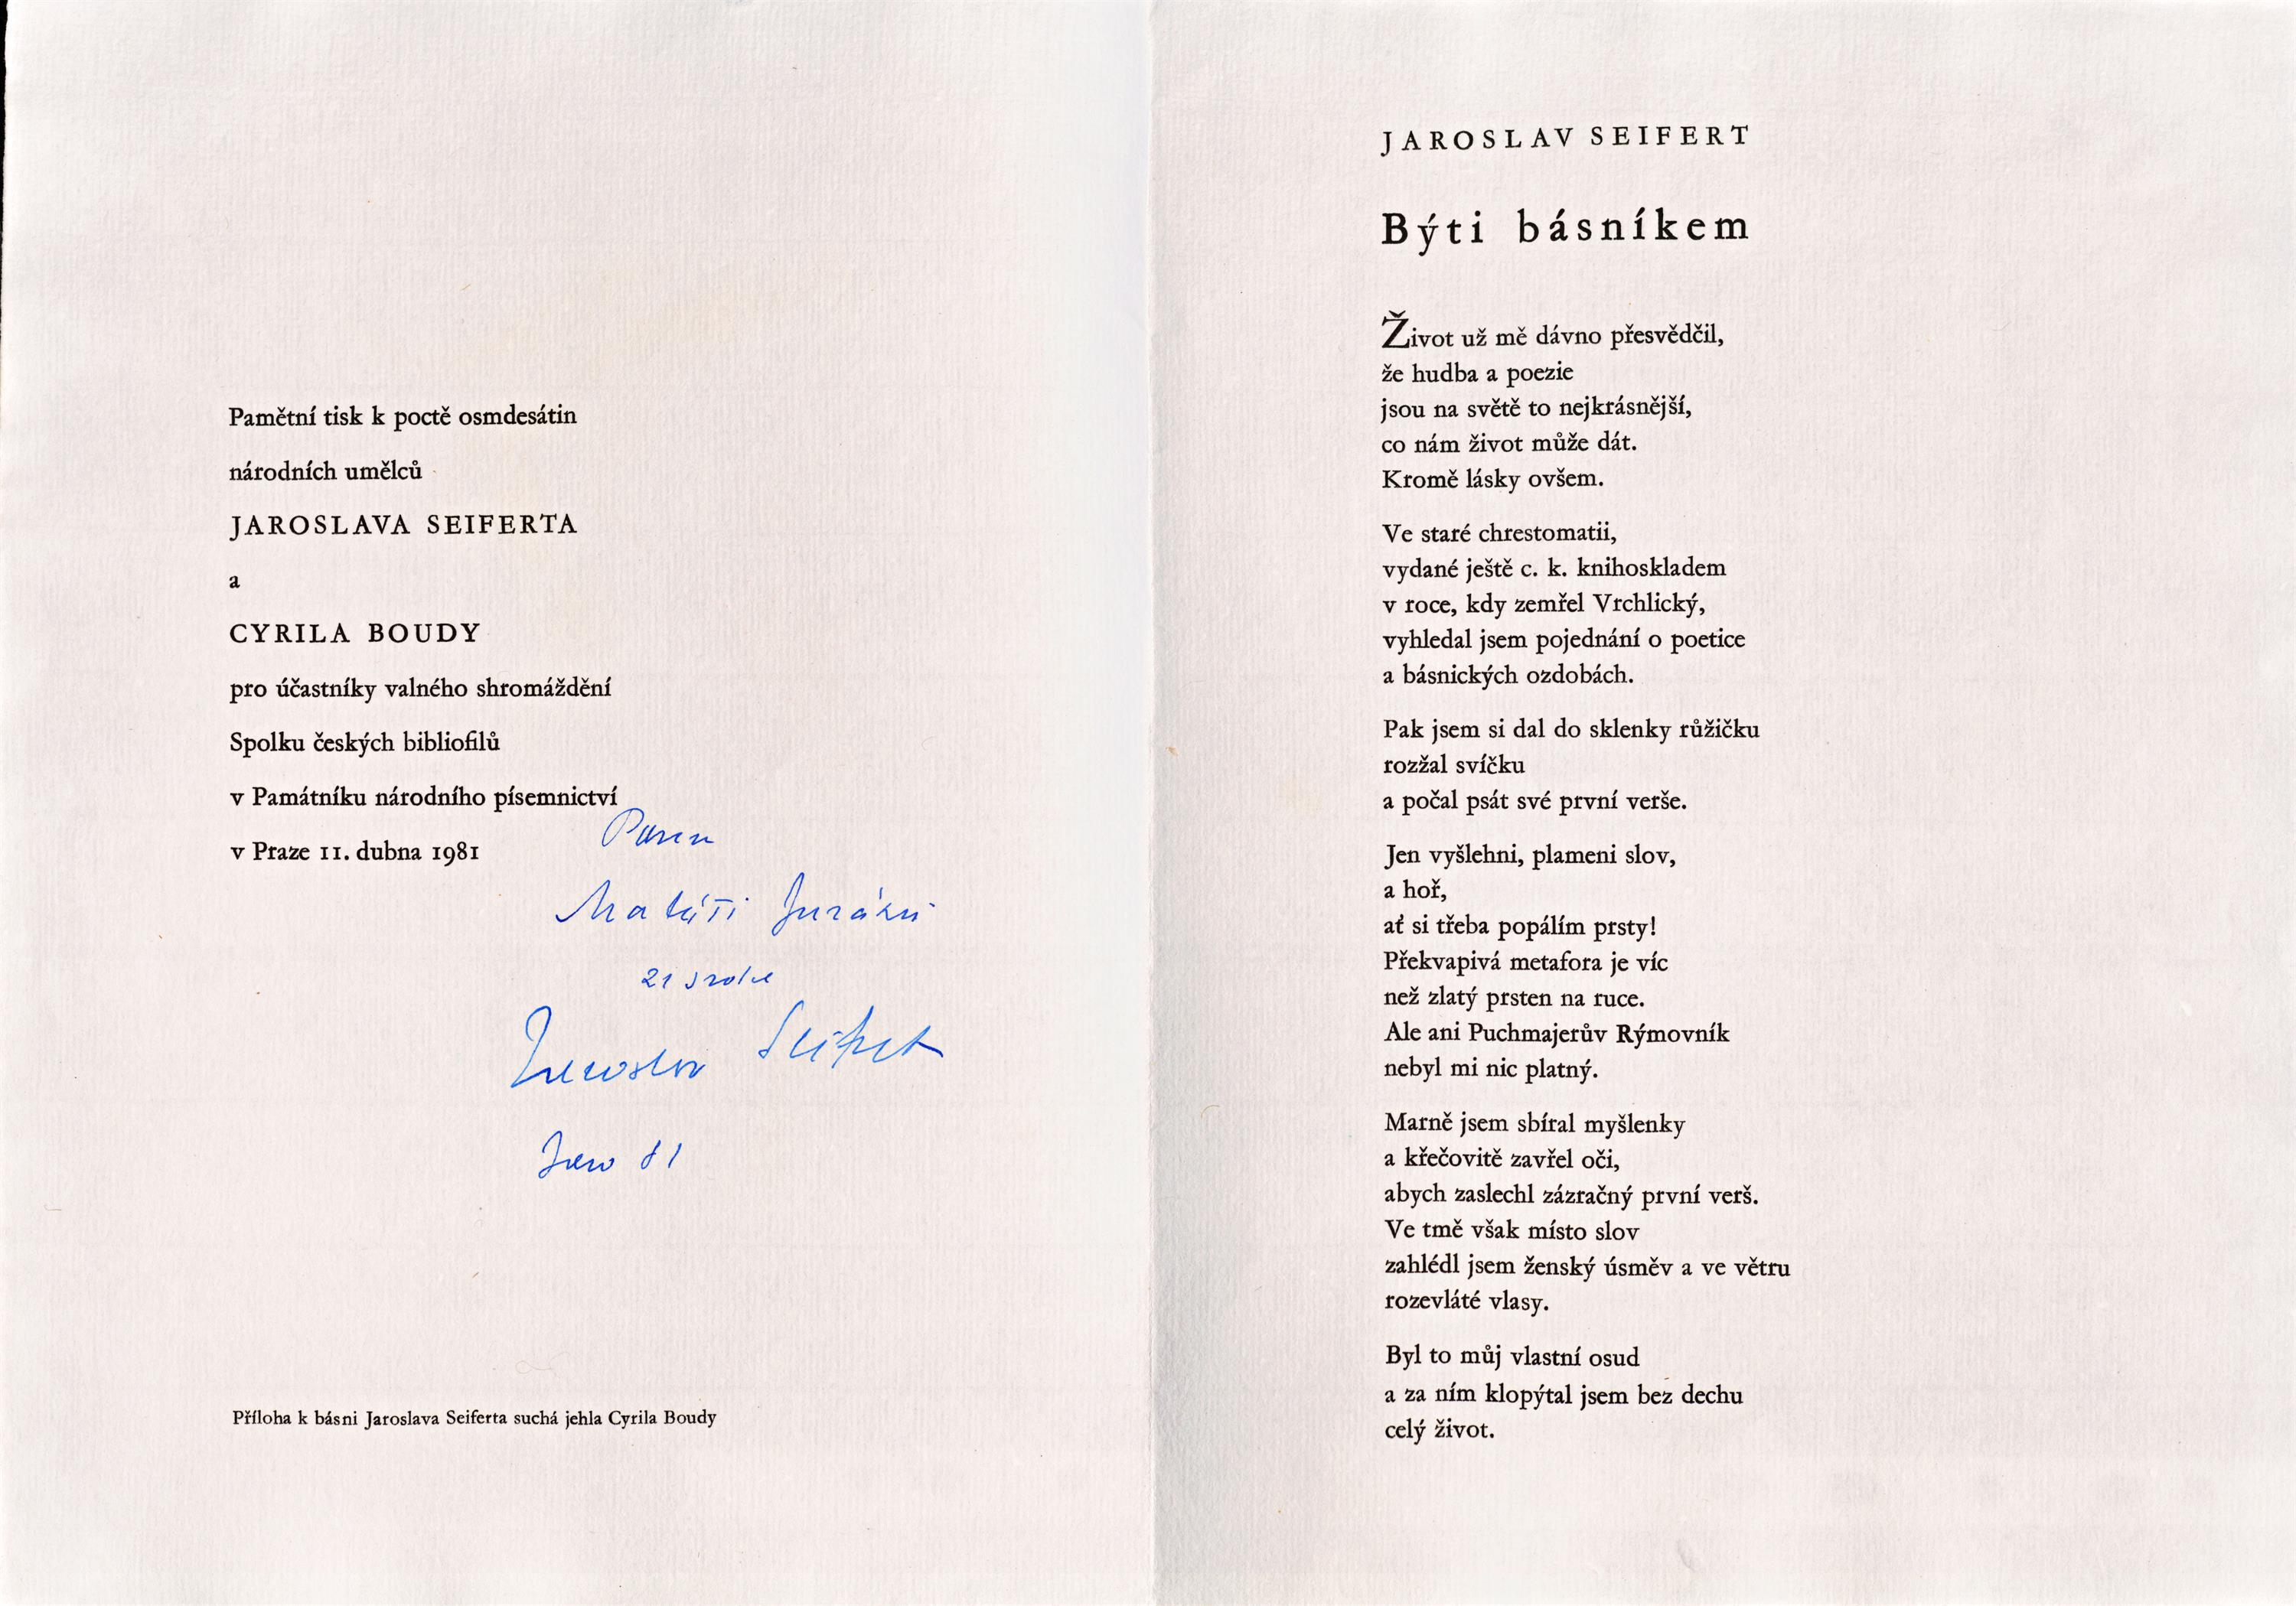 Pamětní tisk k poctě osmdesátin
národních umělců
JAROSLAVA SEIFERTA
a
CYRILA BOUDY
pro účastníky valného shromáždění
Spolku českých bibliofilů
v Památníku národního písemnictví
v Praze 11. dubna 1981
Panu
Matáši Jurázu
Jaroslav Seifert
81
Příloha k básni Jaroslava Seiferta suchá jehla Cyrila Boudy
JAROSLAV SEIFERT
Býti básníkem
Život už mě dávno přesvědčil,
že hudba a poezie
jsou na světě to nejkrásnější,
co nám život může dát.
Kromě lásky ovšem.
Ve staré chrestomatii,
vydané ještě c. k. knihoskladem
v roce, kdy zemřel Vrchlický,
vyhledal jsem pojednání o poetice
a básnických ozdobách.
Pak jsem si dal do sklenky růžičku
rozžal svíčku
a počal psát své první verše.
Jen vyšlehni, plameni slov,
a hoř,
ať si třeba popálím prsty!
Překvapivá metafora je víc
než zlatý prsten na ruce.
Ale ani Puchmajerův Rýmovník
nebyl mi nic platný.
Marně jsem sbíral myšlenky
a křečovitě zavřel oči,
abych zaslechl zázračný první verš.
Ve tmě však místo slov
zahlédl jsem ženský úsměv a ve větru
rozevláté vlasy.
Byl to můj vlastní osud
a za ním klopýtal jsem bez dechu
celý život.